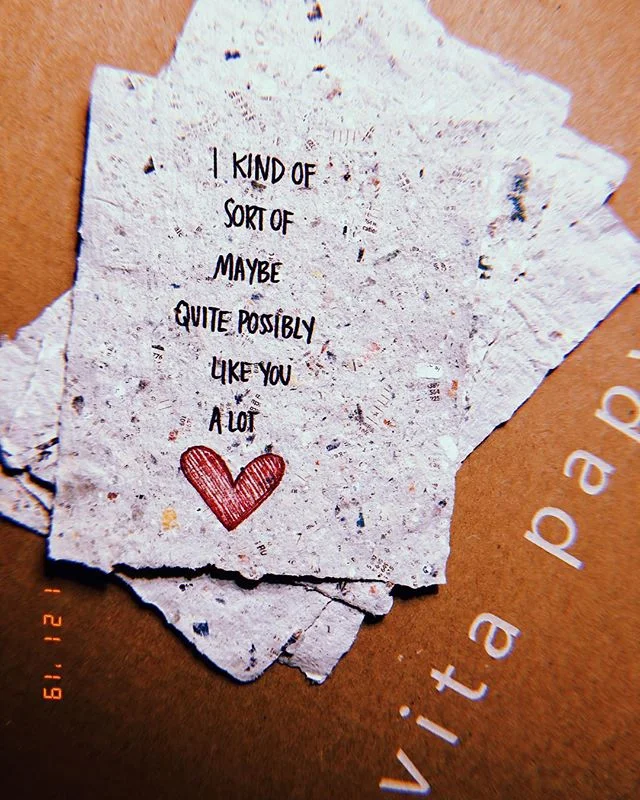 I KIND OF
SORT OF
MAYBE
QUITE POSSIBLY
LIKE YOU
A LOT
vita pap
1 21 '19